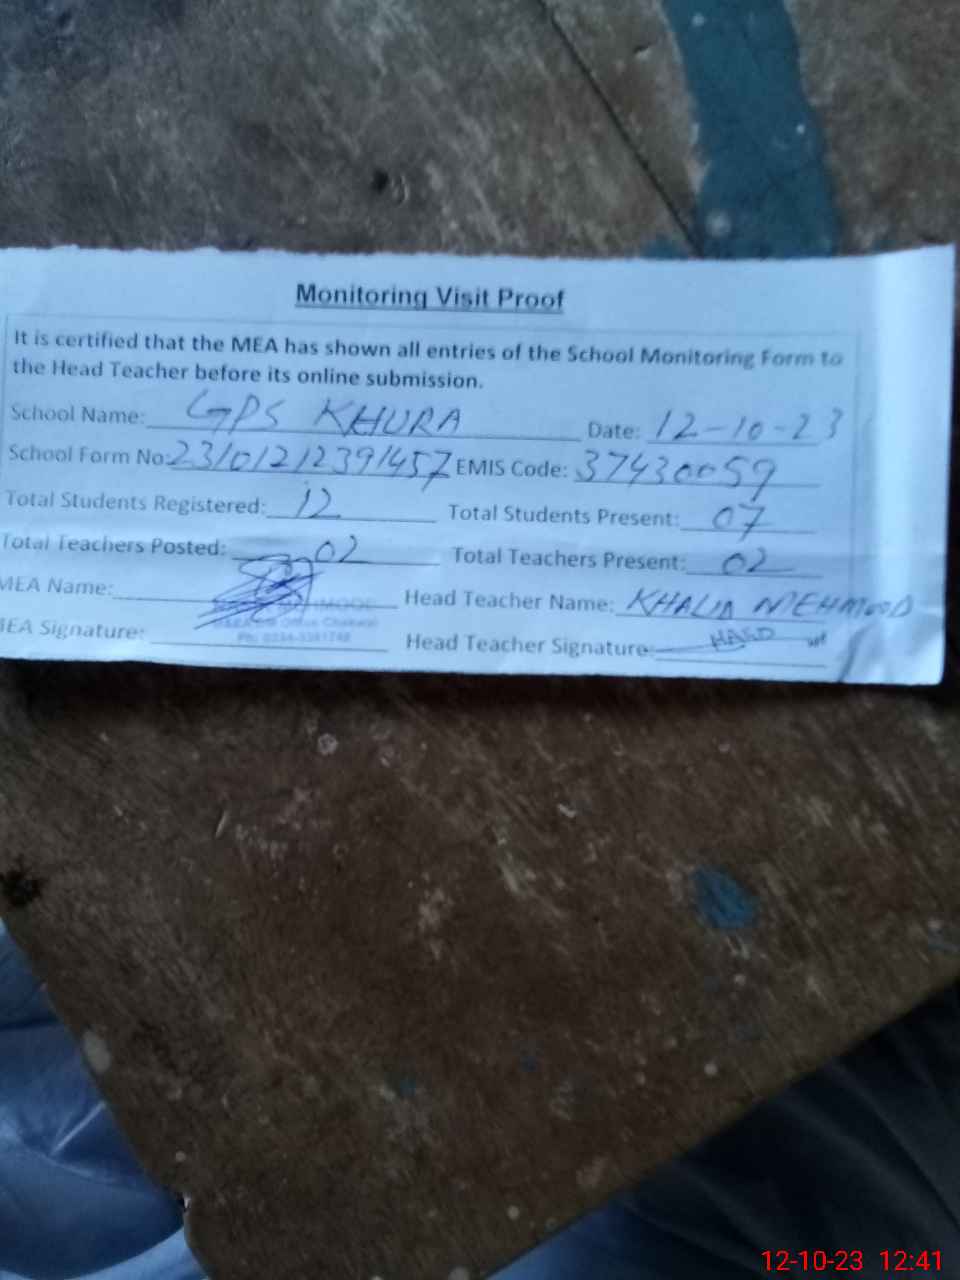 Monitoring Visit Proof
It is certified that the MEA has shown all entries of the School Monitoring Form to
the Head Teacher before its online submission.
School Name: GPS KHURA Date: 12-10-23
School Form No: 23101212391457 EMIS Code: 37430059
Total Students Registered: 12 Total Students Present: 07
Total Teachers Posted: 02 Total Teachers Present: 02
MEA Name: Head Teacher Name: KHALID MEHMOOD
MEA Signature: Head Teacher Signature: HEAD
12-10-23 12:41